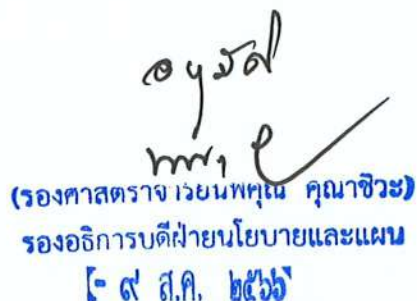 อนุมัติ
(รองศาสตราจารย์นพคุณ คุณาชีวะ)
รองอธิการบดีฝ่ายนโยบายและแผน
- ๙ ส.ค. ๒๕๖๖